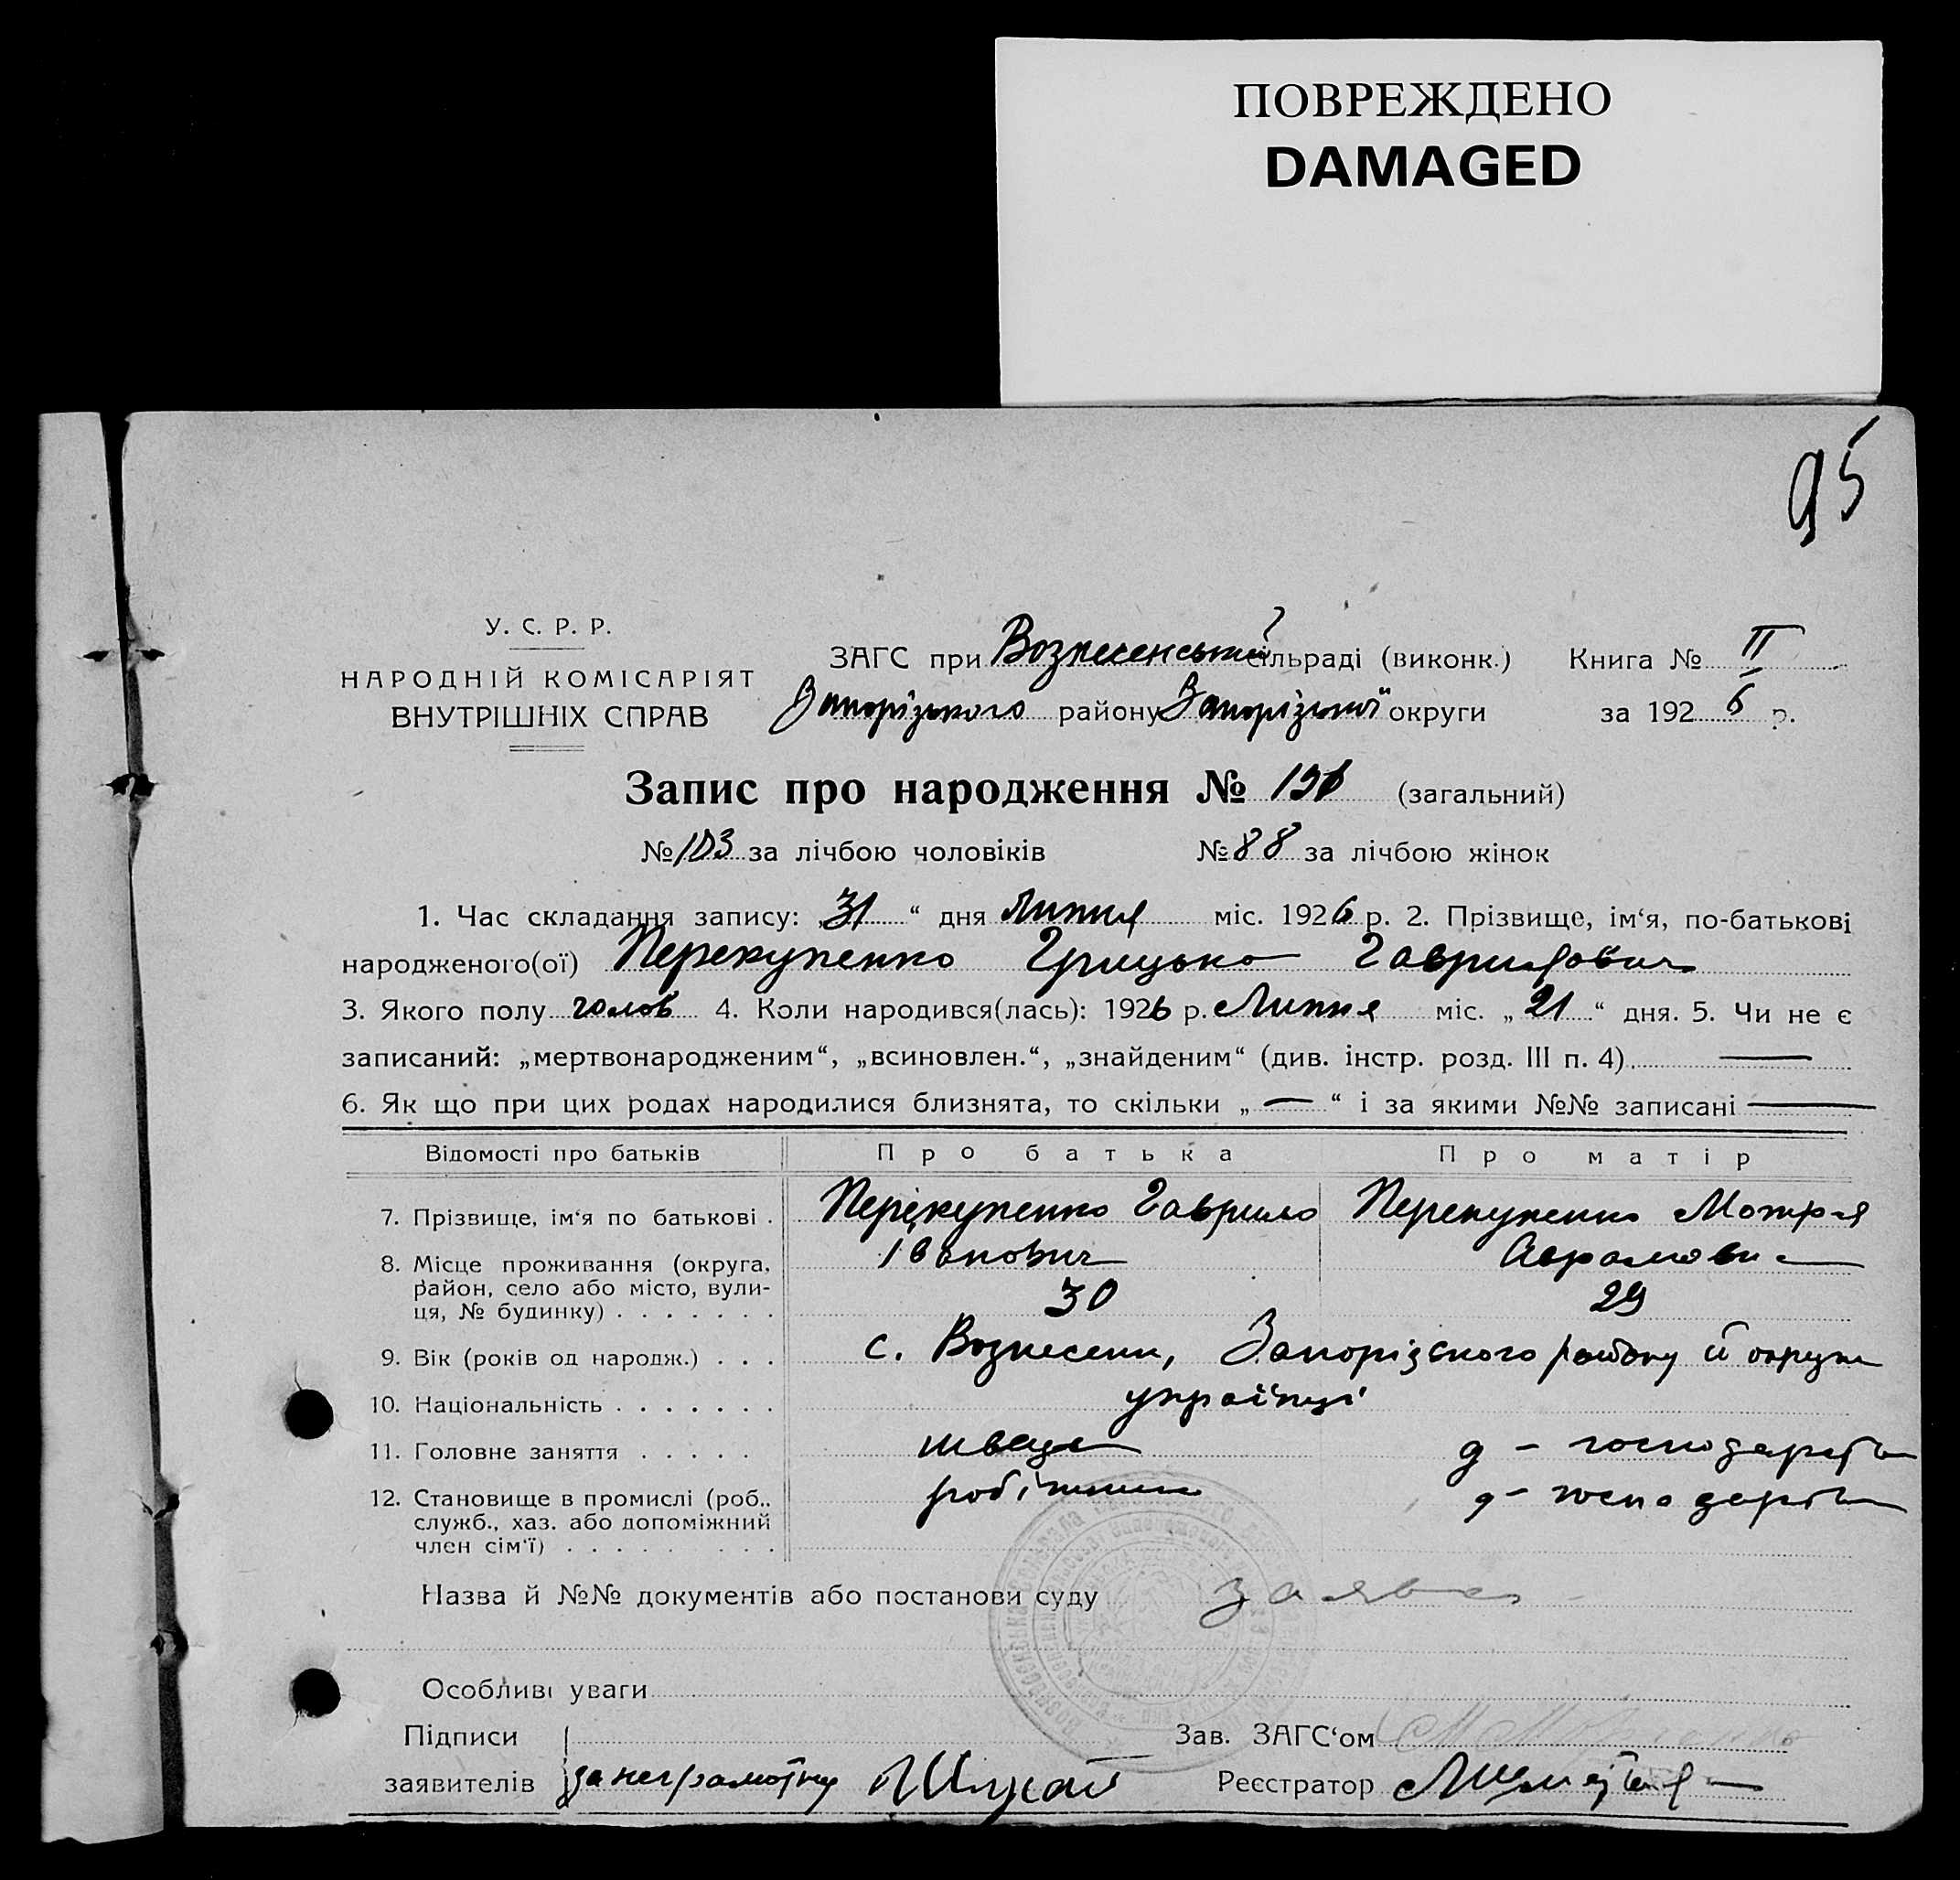 ПОВРЕЖДЕНО
DAMAGED
95
У. С. Р. Р.
НАРОДНІЙ КОМІСАРІЯТ
ВНУТРІШНІХ СПРАВ
ЗАГС при Вознесенській сільраді (виконк.) Книга № II
Запорізького району Запорізької округи за 1926 р.
Запис про народження № (загальний)
№ 103 за лічбою чоловіків № 88 за лічбою жінок
1. Час складання запису: „31“ дня Липня міс. 1926 р. 2. Прізвище, ім‘я, по-батькові
народженого(ої) Перекупенко Грицько Гаврилович
3. Якого полу чолов 4. Коли народився(лась): 1926 р. Липня міс. „21“ дня. 5. Чи не є
записаний: „мертвонародженим“, „всиновлен.“, „знайденим“ (див. інстр. розд. III п. 4) —
6. Як що при цих родах народилися близнята, то скільки „—“ і за якими №№ записані —
Відомості про батьків Про батька Про матір
7. Прізвище, ім‘я по батькові . Перекупенко Гаврило Перекупенко Мотря
Іванович
8. Місце проживання (округа,
район, село або місто, вули-
ця, № будинку) . . . . . . . 30 29
9. Вік (років од народж.) . . . с. Вознесенк, Запорізького району й округи
10. Національність . . . . . . . українці
11. Головне заняття . . . . . швець д – господарств
12. Становище в промислі (роб., робітник д – господарств
служб., хаз. або допоміжний
член сім‘ї) . . . . . . . . .
Назва й №№ документів або постанови суду заява
Особливі уваги
Підписи Зав. ЗАГС‘ом
заявителів за неграмотну Реєстратор